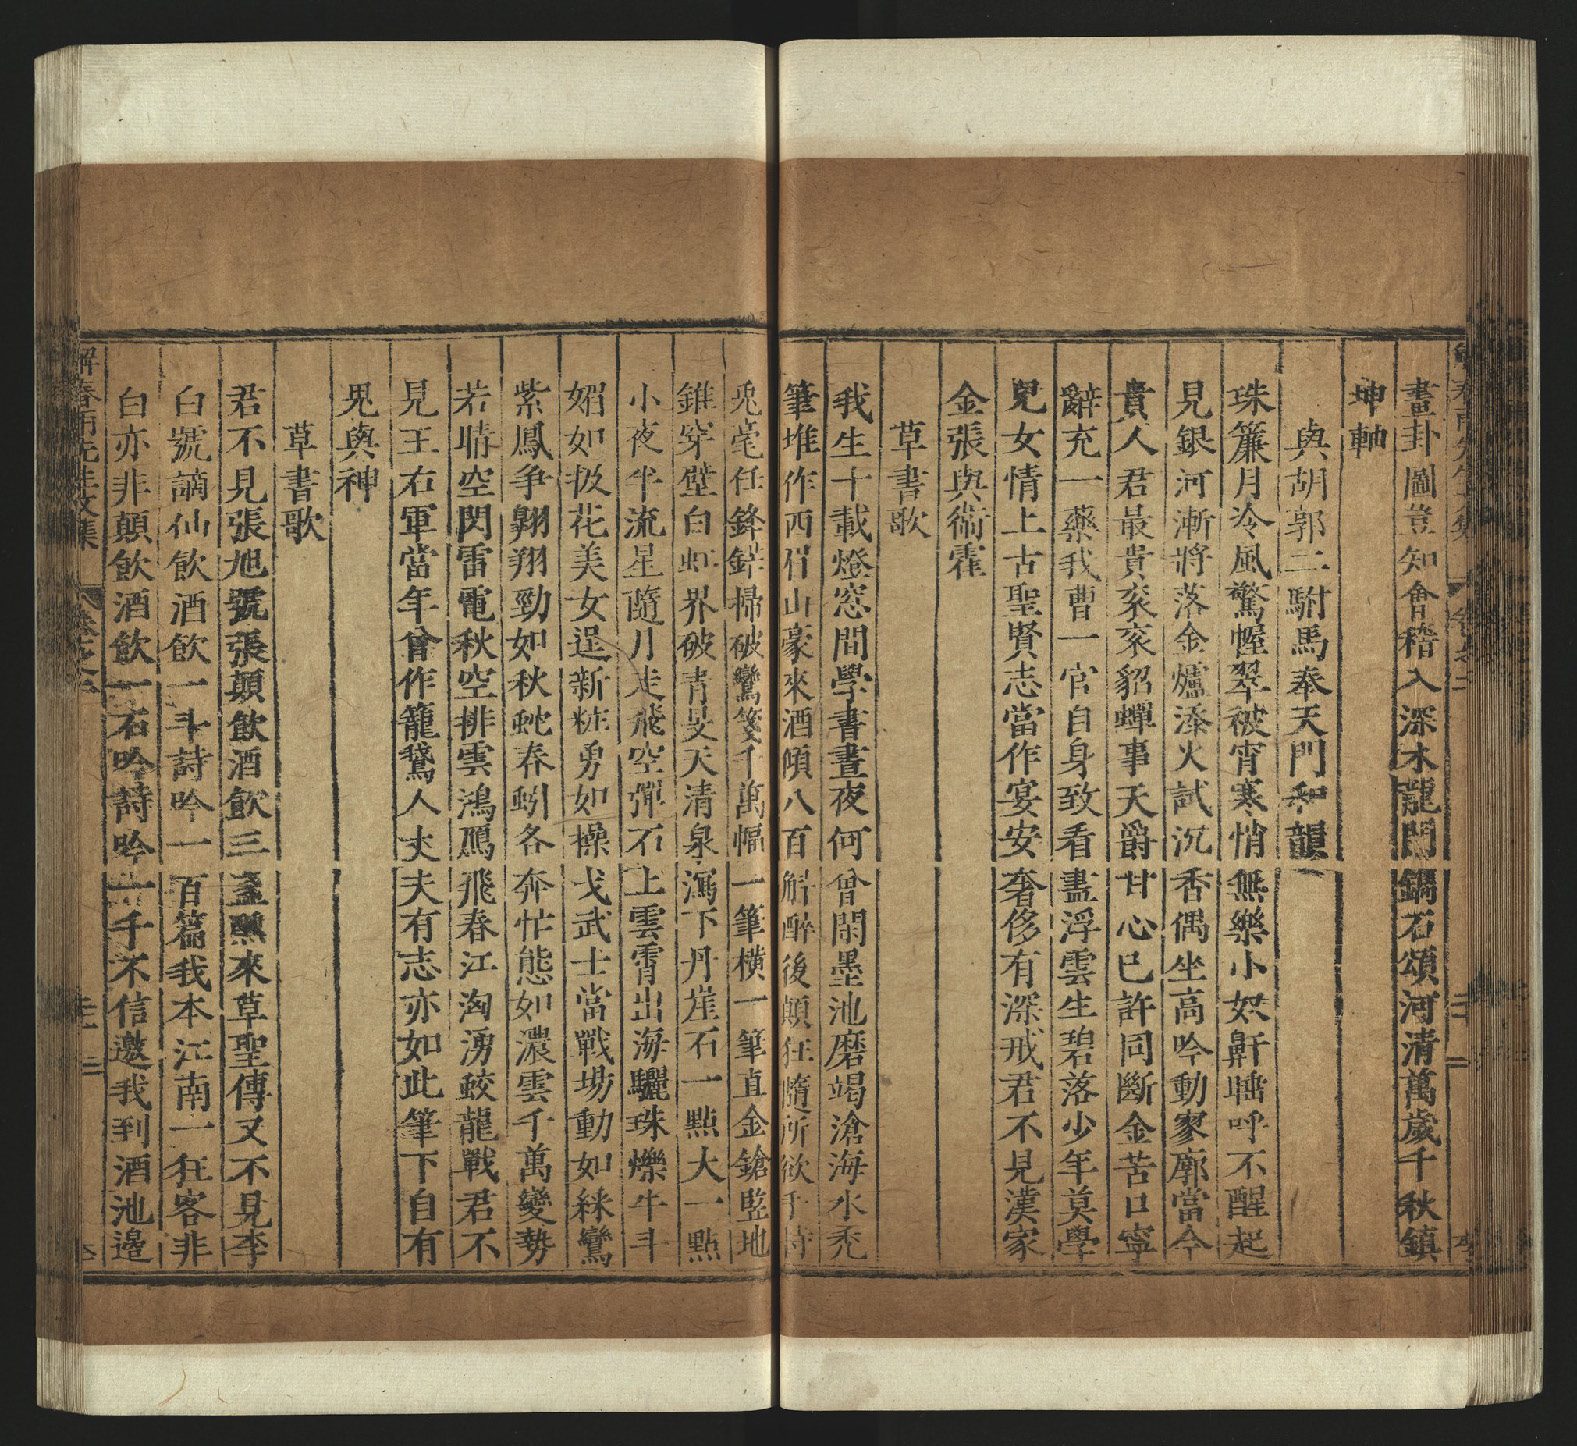 畫卦圖豈知會稽入深木龍門鐫石頌河清萬歲千秋鎮
坤軸
與胡郭二駙馬奉天門和韻
珠簾月冷風驚幄翠被宵寒悄無樂小奴鼾𪖙呼不醒起
見銀河漸將落金爐添火試沉香偶坐高吟動寥廓當今
貴人君最貴衮衮貂蟬事天爵甘心已許同斷金苦口寧
辭充一藥我曹一官自身致看盡浮雲生碧落少年莫學
兒女情上古聖賢志當作宴安奢侈有深戒君不見漢家
金張與衛霍
草書歌
我生十載燈窓間學書晝夜何曾閑墨池磨竭滄海水禿
筆堆作西眉山豪來酒傾八百斛醉後顛狂隨所欲手持
兎毫任鋒鋩掃破鸞箋千萬幅一筆橫一筆直金鎗竪地
錐穿壁白虹界破青旻天清泉瀉下丹崖石一㸃大一㸃
小夜半流星隨月走飛空彈石上雲霄出海驪珠爍牛斗
媚如扱花美女逞新粧勇如操戈武士當戰場動如綵鸞
紫鳳爭翺翔勁如秋蛇春蚓各奔忙態如濃雲千萬變勢
若晴空閃雷電秋空排雲鴻鴈飛春江洶湧蛟龍戰君不
見王右軍當年曾作籠鵞人丈夫有志亦如此筆下自有
鬼與神
草書歌
君不見張旭號張顛飲酒飲三盞㸃來草聖傳又不見李
白號謫仙飲酒飲一斗詩吟一百篇我本江南一狂客非
白亦非顛飲酒飲一石吟詩吟一千不信邀我到酒池邊
解春雨先生文集